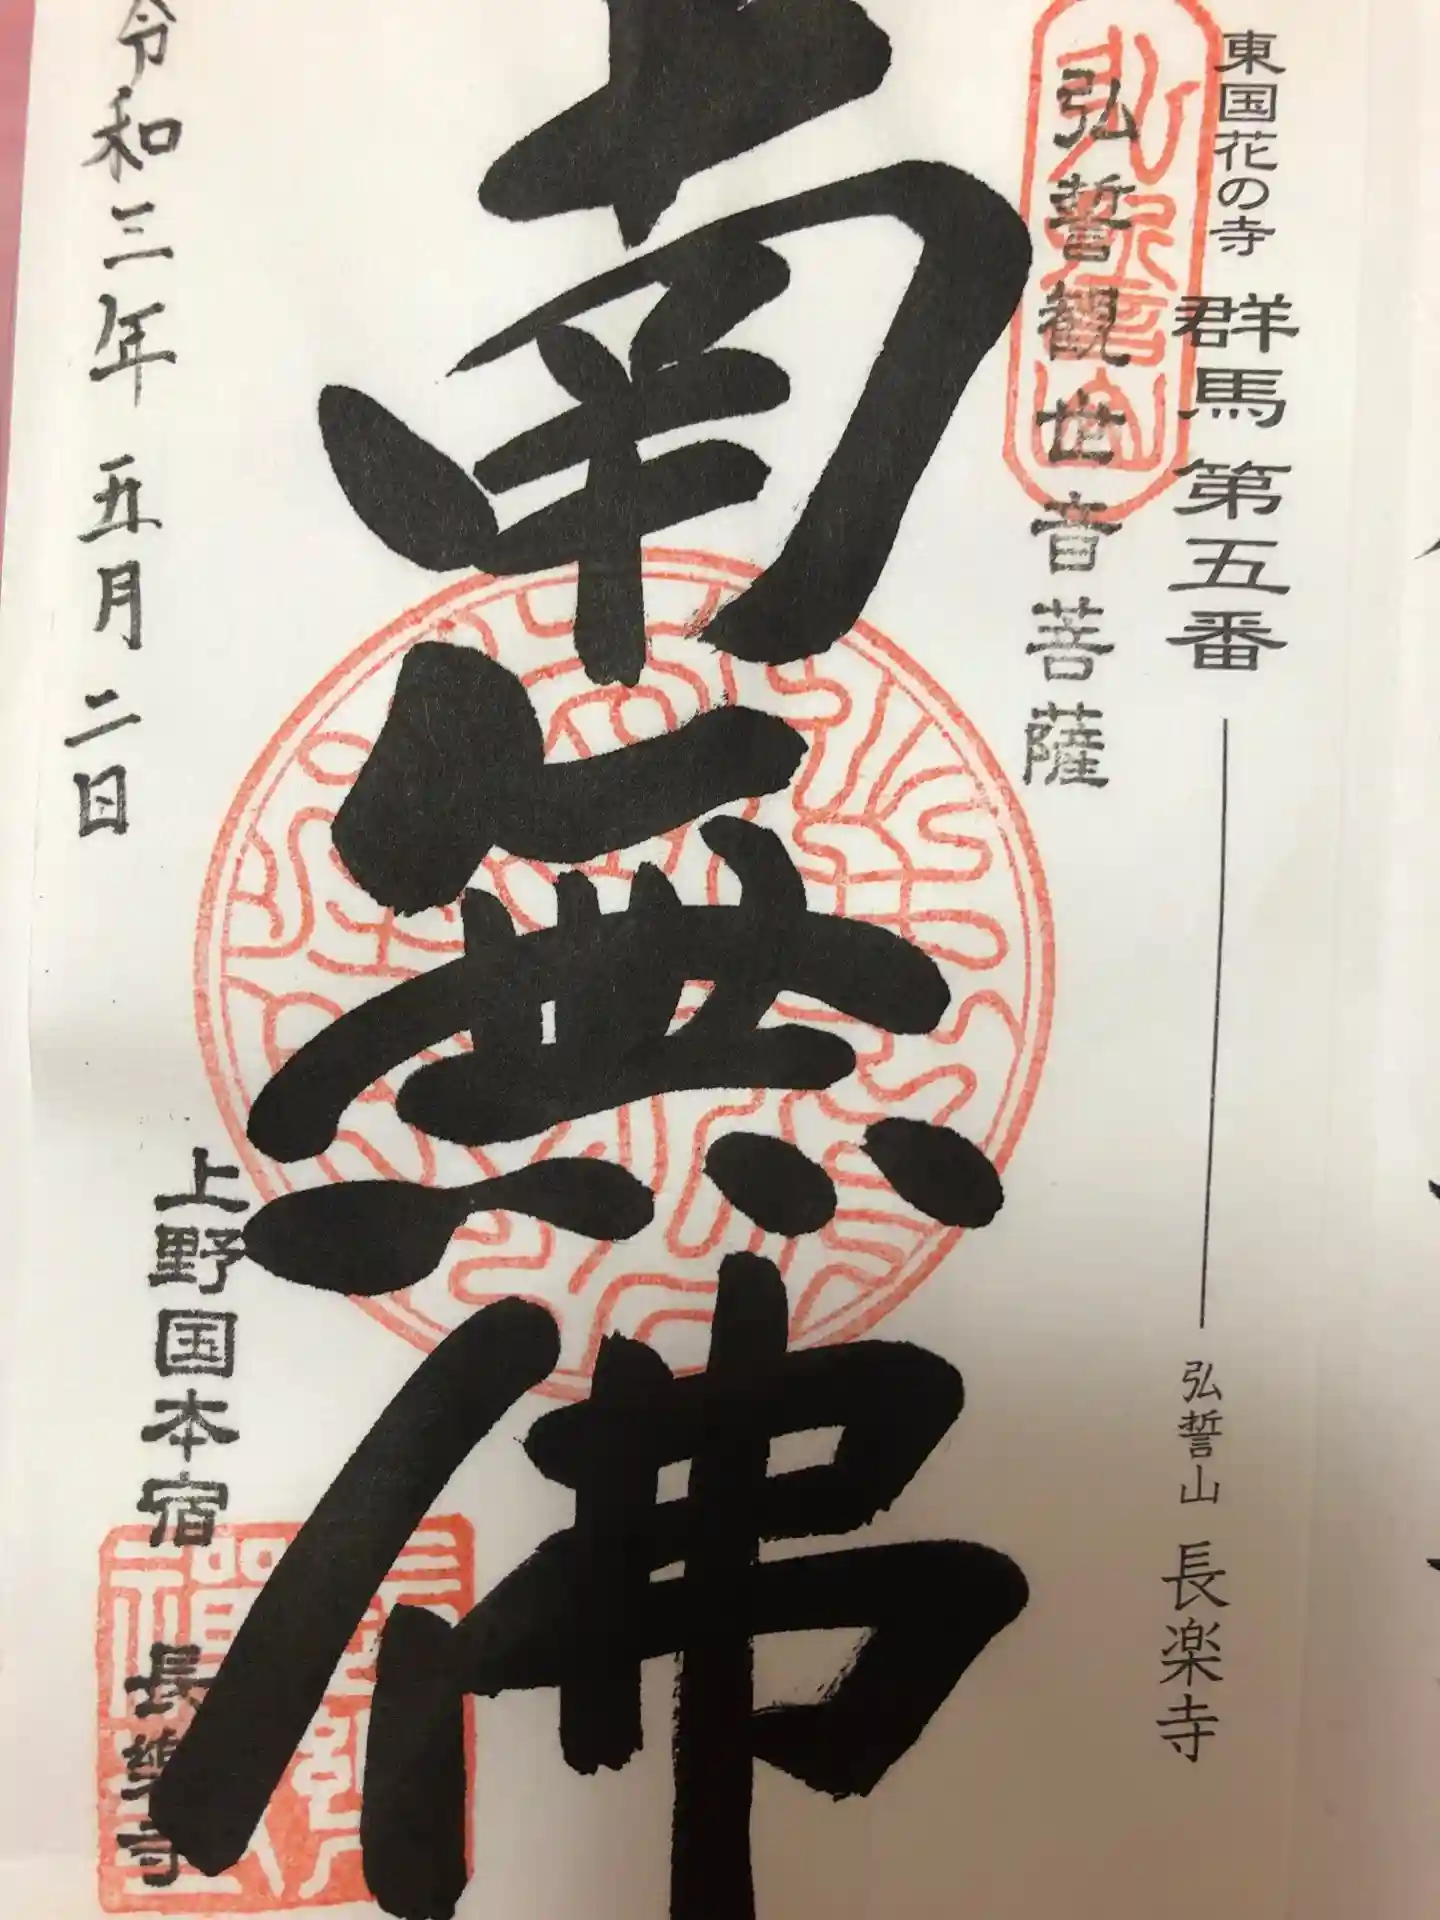 東国花の寺 群馬 第五番 弘誓山 長楽寺
弘誓観世音菩薩
南無佛
上野国本宿 長樂寺
令和三年 五月二日